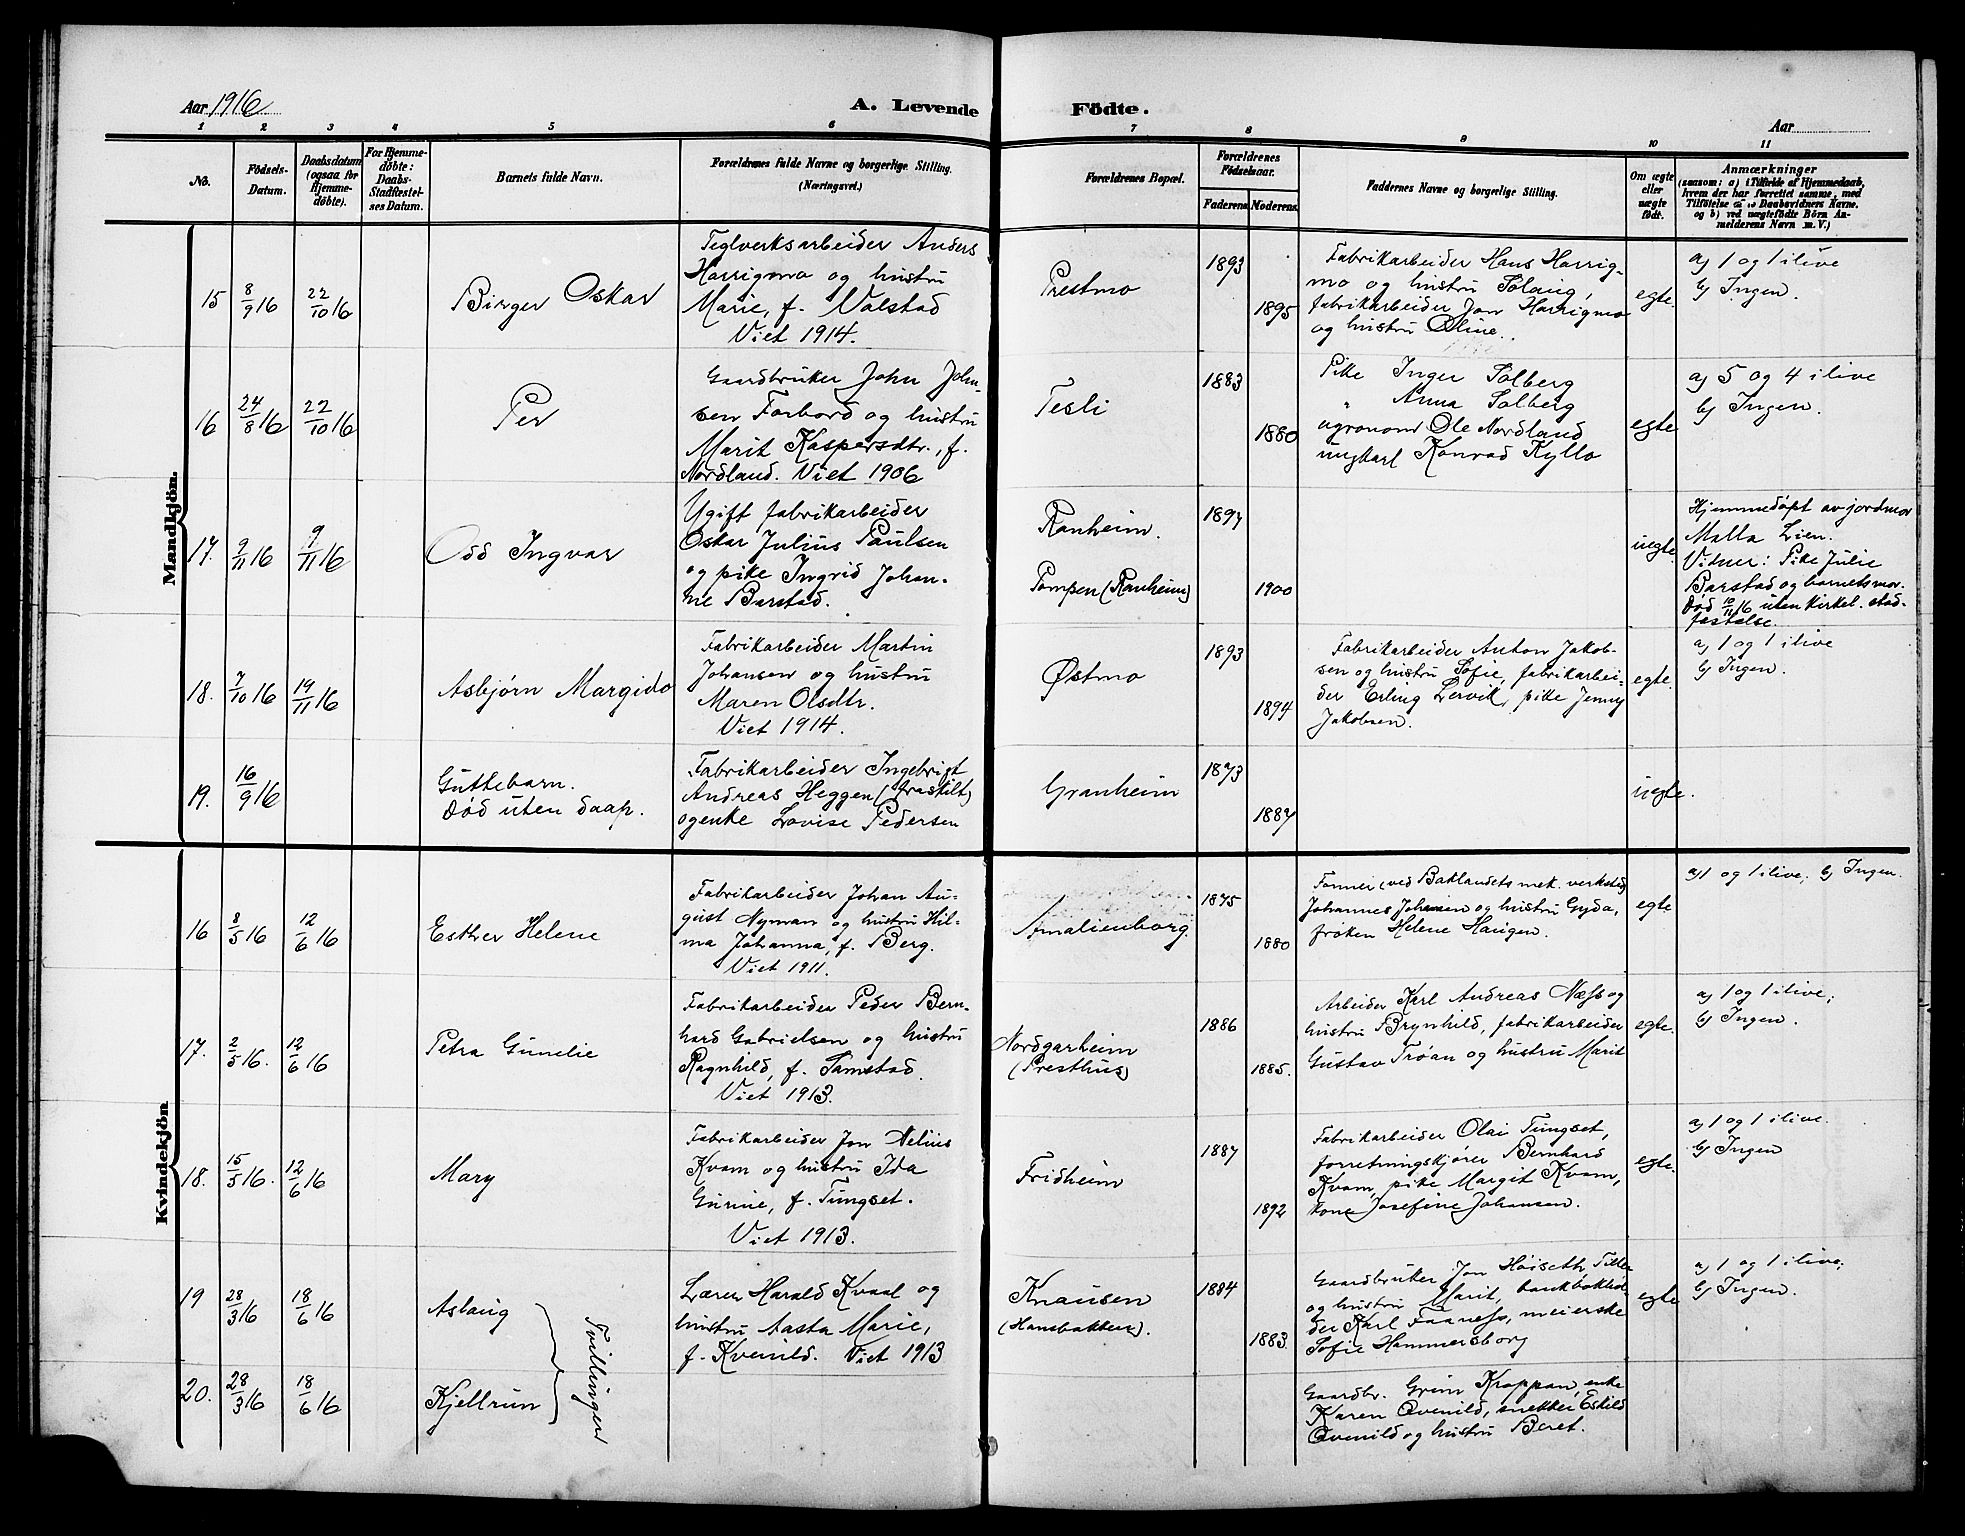 Aar 1916
A. Levende Födte.
Aar
1 2 3 4 5 6 7 8 9 10 11
No.
Födsels-
Datum.
Daabsdatum
(ogsaa for
Hjemme-
döbte).
For Hjemme-
döbte:
Daabs-
Stadfæstel-
ses Datum.
Barnets fulde Navn.
Forældrenes fulde Navne og borgerlige Stilling.
(Næringsvei.)
Forældrenes Bopæl.
Forældrenes
Födselsaar.
Faderens. Moderens.
Faddernes Navne og borgerlige Stilling.
Om ægte
eller
uægte
födt.
Anmærkninger
(saasom: a) i Tilfælde af Hjemmedaab,
hvem der har forrettet samme, med
Tilföielse af to Daabsvidners Navne,
og b) ved uægtefödte Börn An-
melderens Navn m. V.)
Mandkjön.
15 8/9 16 22/10 16
Birger Oskar
Teglverksarbeider Anders
Harrigmo og hustru
Marie, f. Valstad
Viet 1914.
Prestmo
1893
1895
Fabrikarbeider Hans Harrig-
mo og hustru Solaug,
fabrikarbeider Jon Harrigmo
og hustru Oline.
egte.
a) 1 og 1 ilive
b) Ingen.
16 24/8 16 22/10 16
Per
Gaardbruker John John-
sen Forbord og hustru
Marit Kaspersdtr., f.
Nordland. Viet 1906
Tesli
1883
1880
Pike Inger Solberg
" Anna Solberg
agronom Ole Nordland
ungkarl Konrad Kyllo
egte
a) 5 og 4 ilive
b) Ingen.
17. 9/11 16 9/11 16
Odd Ingvar
Ugift fabrikarbeider
Oskar Julius Paulsen
og pike Ingrid Johan-
ne Barstad.
Ranheim.
Pampen (Ranheim)
1897
1900
uegte.
Hjemmedøpt av jordmor
Malla Lien.
Vitner: Pike Julie
Barstad og barnets mor.
Død 10/11 16 uten kirkel. stad-
fæstelse.
18. 7/10 16 19/11 16
Asbjørn Margido
Fabrikarbeider Martin
Johansen og hustru
Maren Olsdtr.
Viet 1914.
Østmo
1893
1894
Fabrikarbeider Anton Jakob-
sen og hustru Sofie, fabrikarbei-
der Erling Lervik, pike Jenny
Jakobsen.
egte.
a) 1 og 1 ilive
b) Ingen.
19. 16/9 16
Guttebarn.
Død uten daap.
Fabrikarbeider Ingebrigt
Andreas Heggen (fraskilt)
og enke Lovise Pedersen
Granheim
1873
1887
uegte.
Kvindekjön
16 8/5 16 12/6 16
Esther Helene
Fabrikarbeider Johan Au-
gust Nyman og hustru Hil-
ma Johanna, f. Berg.
Viet 1911.
Amalienborg.
1875
1880
Former (ved Baklandets mek. verksted)
Johannes Johansen og hustru Gyda,
frøken Helene Haugen.
egte
a) 1 og 1 ilive; b) Ingen.
17. 2/5 16. 12/6 16
Petra Gunelie
Fabrikarbeider Peder Bern-
hard Gabrielsen og hustru
Ragnhild, f. Samstad.
Viet 1913.
Nordgarheim
(Presthus)
1886
1885.
Arbeider Karl Andreas Næss og
hustru Brynhild, fabrikarbeider
Gustav Trøan og hustru Marit
egte.
a) 1 og 1 ilive;
b) Ingen.
18. 15/5 16. 12/6 16
Mary
Fabrikarbeider Jon Nelius
Kvam og hustru Ida
Gurine, f. Tungset.
Viet 1913.
Fridheim
1887
1892
Fabrikarbeider Olai Tungset,
forretningskjører Bernhard
Kvam, pike Margit Kvam,
kone Josefine Johansen.
egte.
a) 1 og 1 ilive.
b) Ingen
19 28/3 16 18/6 16
Aslaug
Tvillinger
Lærer Harald Kvaal og
hustru Aasta Marie,
f. Kvenild. Viet 1913
Knausen
(Hansbakken).
1884
1883.
Gaardbruker Jon Høiseth Tiller
og hustru Marit, bankbokhol-
der Karl Faaness, meierske
Sofie Hammersborg
egte
a) 1 og 1 ilive;
b) Ingen.
20. 28/3 16 18/6 16
Kjellrun
Gaardbr. Grim Kroppan, enke
Karen Qvenild, snekker Eskild
Qvenild og hustru Beret.